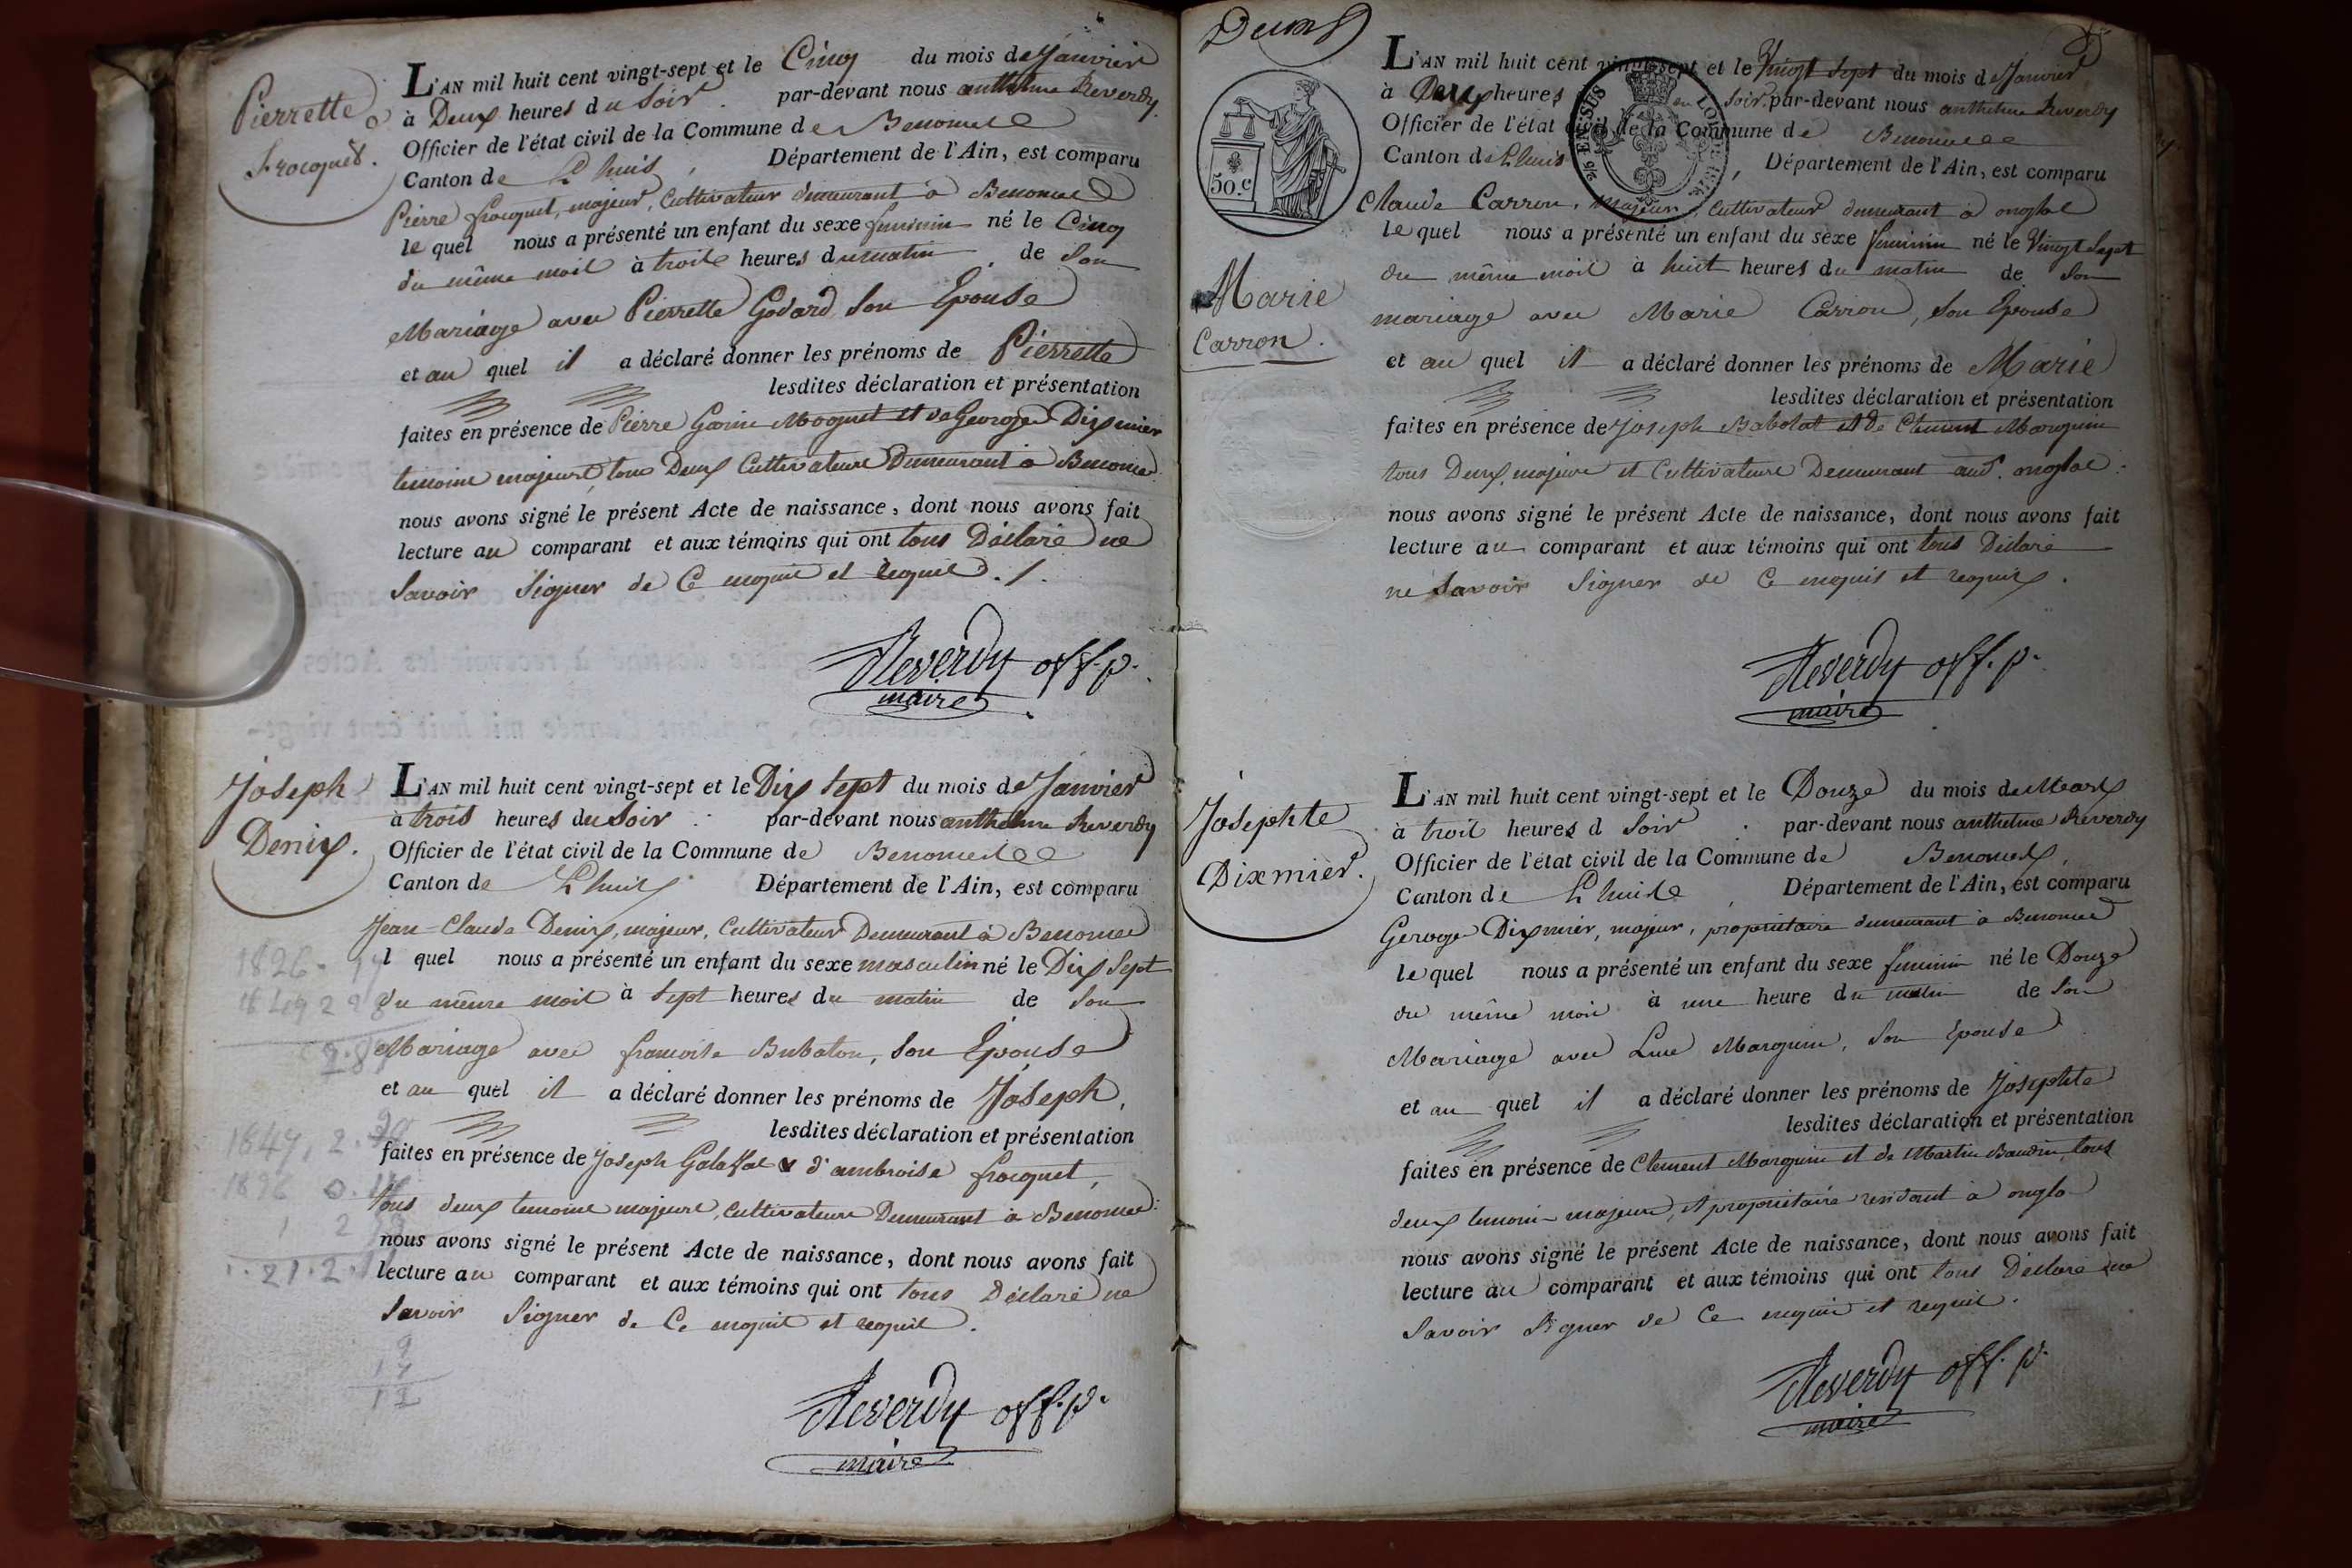 Pierrette
Frocquet.
L'AN mil huit cent vingt-sept et le Cinq du mois de Janvier
à Deux heures du Soir. par-devant nous anthelme Reverdy
Officier de l'état civil de la Commune de Benonces
Canton de Lhuis, Département de l'Ain, est comparu
Pierre frocquet, majeur, Cultivateur demeurant à Benonces
lequel nous a présenté un enfant du sexe feminin né le Cinq
du même mois à trois heures du matin, de son
Mariage avec Pierrette Godard son Epouse
et au quel il a déclaré donner les prénoms de Pierrette
lesdites déclaration et présentation
faites en présence de Pierre Moquet et de George Dixmier
temoins majeurs, tous Deux Cultivateurs Demeurant à Benonces
nous avons signé le présent Acte de naissance, dont nous avons fait
lecture au comparant et aux témoins qui ont tous Déclaré ne
Savoir Signer de Ce enquis et requis ./.
Reverdy off. p.
maire
Joseph
Denix.
L'AN mil huit cent vingt-sept et le Dix Sept du mois de Janvier
à trois heures du Soir. par-devant nous anthelme Reverdy
Officier de l'état civil de la Commune de Benonces
Canton de Lhuis Département de l'Ain, est comparu
Jean-Claude Denix, majeur, Cultivateur Demeurant à Benonces
l quel nous a présenté un enfant du sexe masculin né le Dix Sept
du même mois à Sept heures du matin de son
Mariage avec francoise Bubaton, son Epouse
et au quel il a déclaré donner les prénoms de Joseph,
lesdites déclaration et présentation
faites en présence de Joseph d'ambroise frocquet,
tous deux temoins majeurs, Cultivateurs Demeurant à Benonces
nous avons signé le présent Acte de naissance, dont nous avons fait
lecture au comparant et aux témoins qui ont tous Déclaré ne
Savoir Signer de Ce enquis et requis.
Reverdy off. p.
maire
Deux
50.c
Marie
Carron.
L'AN mil huit cent vingt-sept et le Vingt Sept du mois de Janvier
à Deux heures du Soir. par-devant nous anthelme Reverdy
Officier de l'état civil de la Commune de Benonces
Canton de Lhuis, Département de l'Ain, est comparu
Claude Carron, majeur, Cultivateur demeurant à onglas
lequel nous a présenté un enfant du sexe feminin né le Vingt Sept
du même mois à huit heures du matin de son
mariage avec Marie Carron, son Epouse
et au quel il a déclaré donner les prénoms de Marie
lesdites déclaration et présentation
faites en présence de Joseph Babolat et de Clement Marquin
tous Deux, majeurs et Cultivateurs Demeurant aud. onglas.
nous avons signé le présent Acte de naissance, dont nous avons fait
lecture au comparant et aux témoins qui ont tous Déclaré
ne Savoir Signer de Ce enquis et requis.
Reverdy off. p.
maire
Josephte
Dixmier.
L'AN mil huit cent vingt-sept et le Douze du mois de Mars
à trois heures d Soir. par-devant nous anthelme Reverdy
Officier de l'état civil de la Commune de Benonces,
Canton de Lhuis, Département de l'Ain, est comparu
George Dixmier, majeur, propriétaire demeurant à Benonces
lequel nous a présenté un enfant du sexe feminin né le Douze
du même mois à une heure du matin de son
Mariage avec Marquin, son Epouse
et au quel il a déclaré donner les prénoms de Josephte
lesdites déclaration et présentation
faites en présence de Clement Marquin et de Martin Baudin, tous
deux temoins majeurs, et propriétaire residant à onglas
nous avons signé le présent Acte de naissance, dont nous avons fait
lecture au comparant et aux témoins qui ont tous Déclaré ne
Savoir Signer de Ce enquis et requis.
Reverdy off. p.
maire